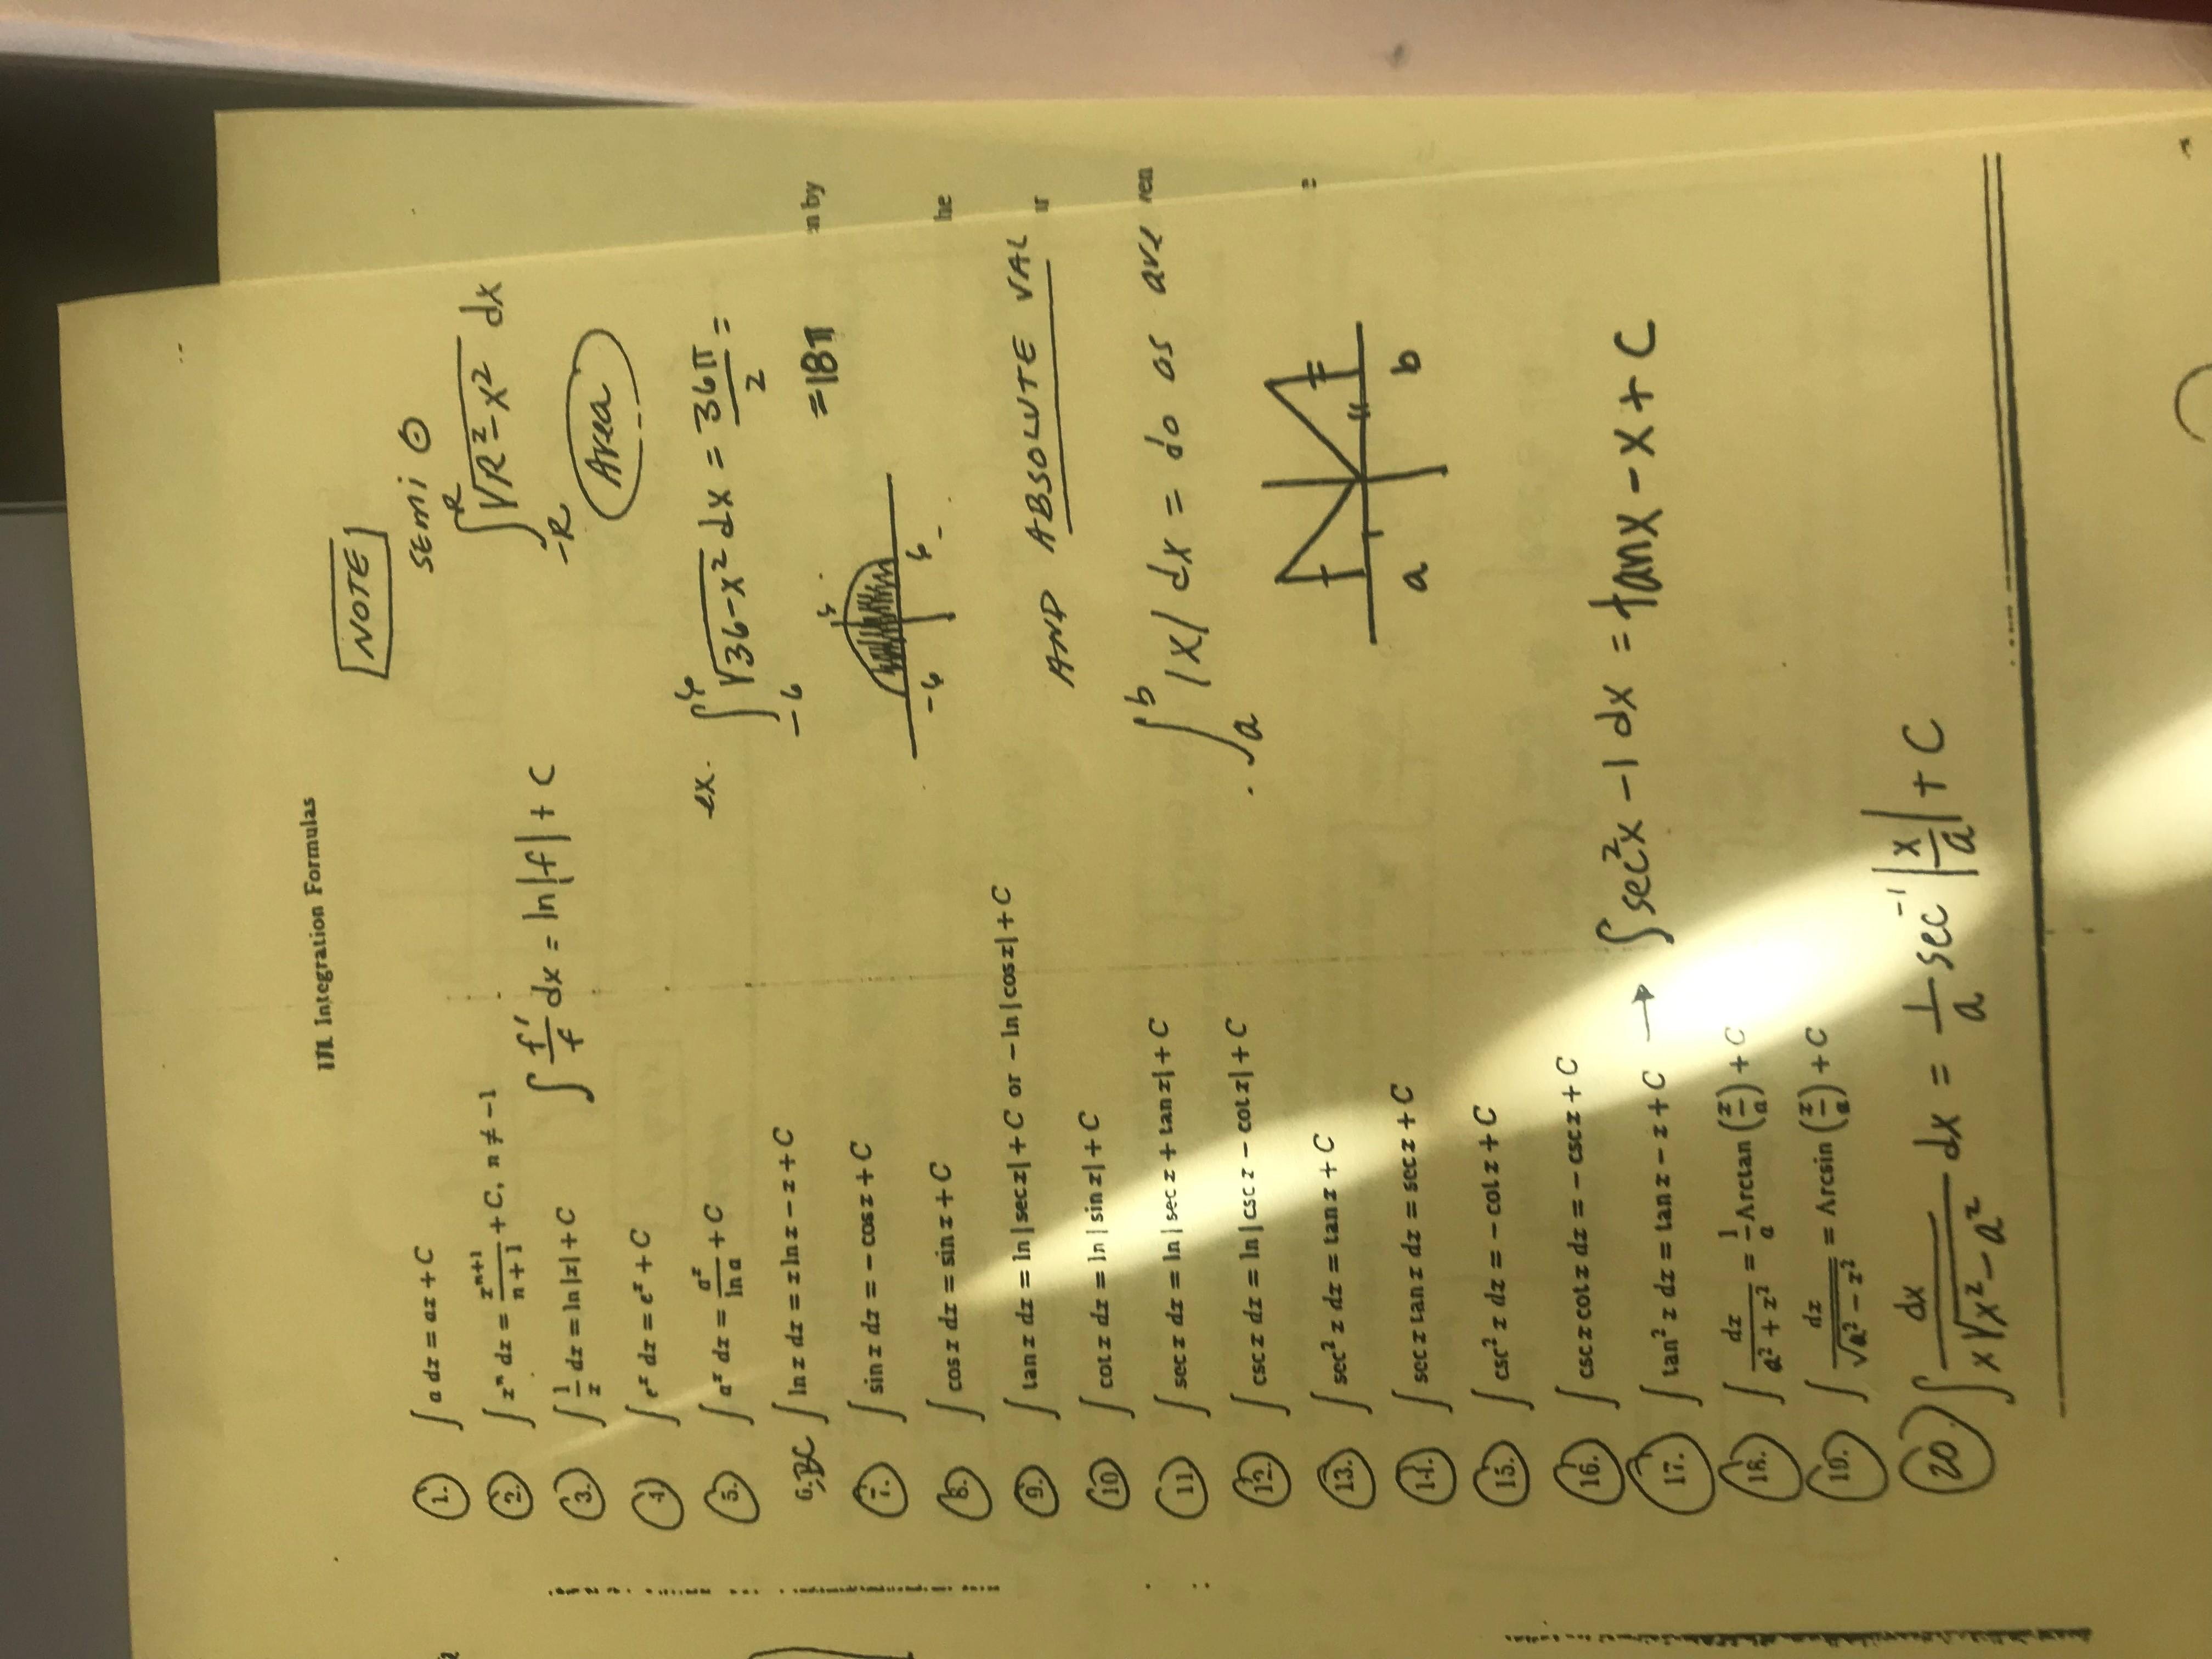 III Integration Formulas
NOTE
1. ∫ a dx = ax + C
2. ∫ xⁿ dx = xⁿ⁺¹/(n + 1) + C, n ≠ −1
3. ∫ 1/x dx = ln |x| + C
∫ f'/f dx = ln |f| + C
4. ∫ eˣ dx = eˣ + C
5. ∫ aˣ dx = aˣ/ln a + C
6. BC ∫ ln x dx = x ln x − x + C
7. ∫ sin x dx = − cos x + C
8. ∫ cos x dx = sin x + C
9. ∫ tan x dx = ln | sec x| + C or − ln | cos x| + C
10 ∫ cot x dx = ln | sin x| + C
11 ∫ sec x dx = ln | sec x + tan x| + C
12. ∫ csc x dx = ln | csc x − cot x| + C
13. ∫ sec² x dx = tan x + C
14. ∫ sec x tan x dx = sec x + C
15. ∫ csc² x dx = − cot x + C
16. ∫ csc x cot x dx = − csc x + C
17. ∫ tan² x dx = tan x − x + C → ∫ sec²x − 1 dx = tanx − x + C
18. ∫ dx/(a² + x²) = 1/a Arctan (x/a) + C
19. ∫ dx/√(a² − x²) = Arcsin (x/a) + C
20. ∫ dx/(x√(x² − a²)) dx = 1/a sec⁻¹ |x/a| + C
SEMI ⊙
∫₋ᴿᴿ √(R² − x²) dx
Area
ex. ∫₋₆⁶ √(36 − x²) dx = 36π/2 =
= 18π
6
−6 6
AND ABSOLUTE VAL
∫ₐᵇ |x| dx = do as are
a b
n by
he
ur
ven